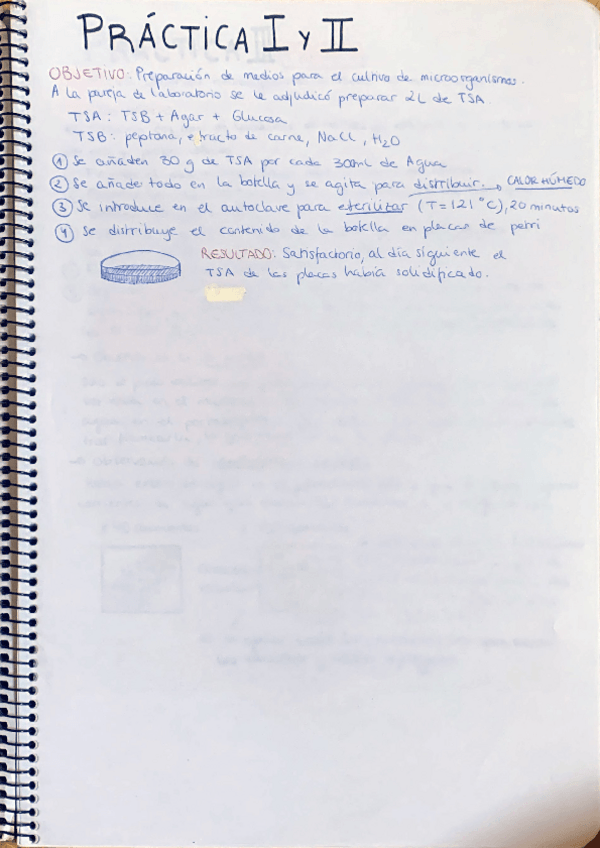 PRÁCTICA I Y II
OBJETIVO: Preparación de medios para el cultivo de microorganismos.
A la pareja de laboratorio se le adjudicó preparar 2L de TSA.
TSA: TSB + Agar + Glucosa
TSB: peptona, extracto de carne, NaCl, H2O
① Se añaden 30 g de TSA por cada 300ml de Agua
② Se añade todo en la botella y se agita para distribuir. → CALOR HÚMEDO
③ Se introduce en el autoclave para esterilizar (T=121°C), 20 minutos
④ Se distribuye el contenido de la botella en placas de petri
RESULTADO: Satisfactorio, al día siguiente el
TSA de las placas había solidificado.